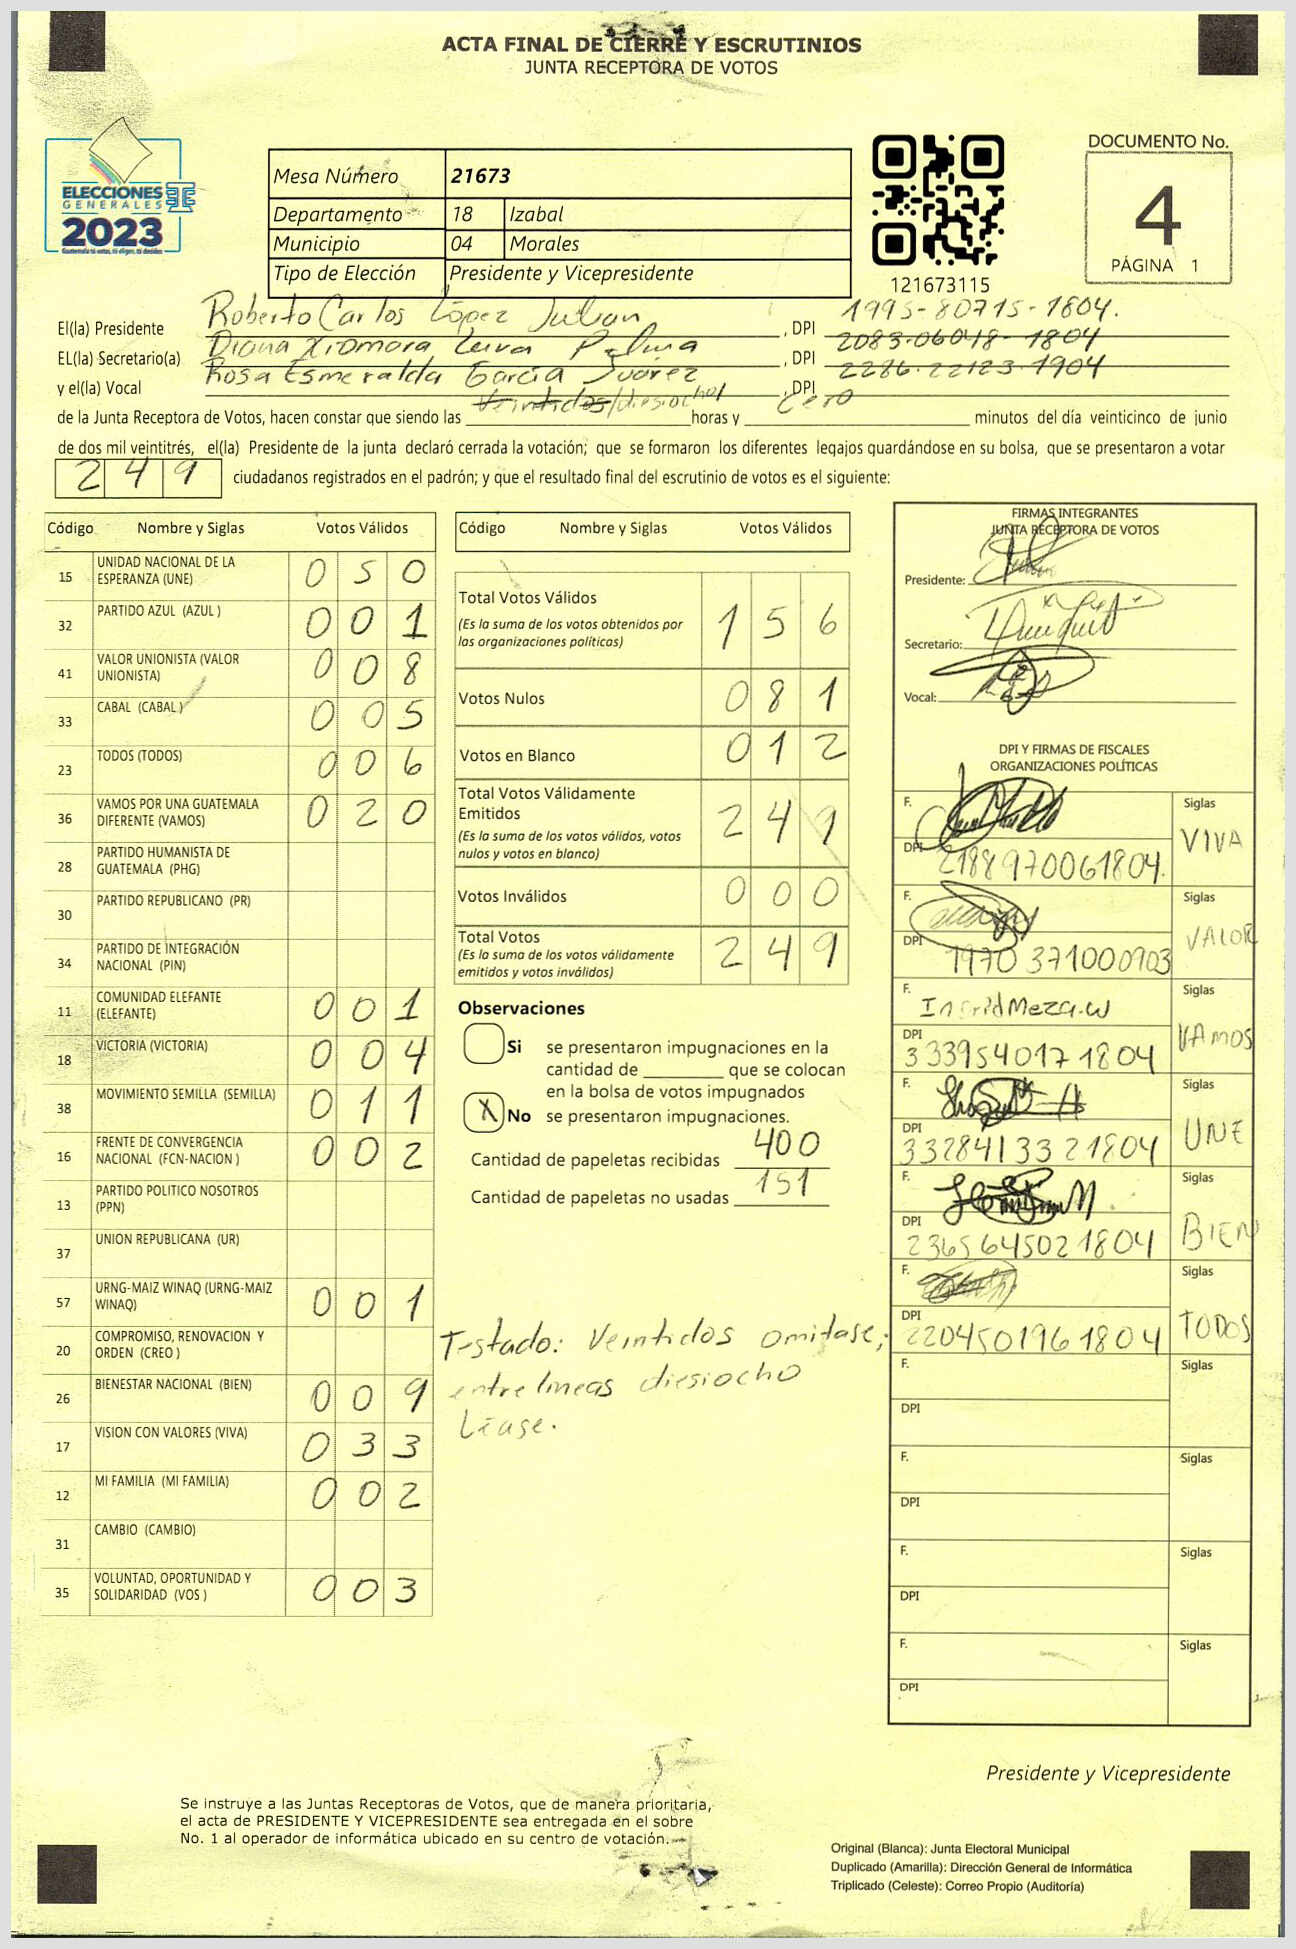 ACTA FINAL DE CIERRE Y ESCRUTINIOS
JUNTA RECEPTORA DE VOTOS
ELECCIONES
GENERALES
2023
Mesa Número 21673
Departamento 18 Izabal
Municipio 04 Morales
Tipo de Elección Presidente y Vicepresidente
121673115
DOCUMENTO No.
4
PÁGINA 1
El(la) Presidente Roberto Carlos López Julian, DPI 1995-80715-1804.
EL(la) Secretario(a) Diana Xiomara Leiva Palma, DPI 2083-06048-1804
y el(la) Vocal Rosa Esmeralda García Juárez, DPI 2286-22123-1904
de la Junta Receptora de Votos, hacen constar que siendo las Veintidos/diesiocho/ horas y Cero minutos del día veinticinco de junio
de dos mil veintitrés, el(la) Presidente de la junta declaró cerrada la votación; que se formaron los diferentes legajos guardándose en su bolsa, que se presentaron a votar
249 ciudadanos registrados en el padrón; y que el resultado final del escrutinio de votos es el siguiente:
Código Nombre y Siglas Votos Válidos
15 UNIDAD NACIONAL DE LA ESPERANZA (UNE) 050
32 PARTIDO AZUL (AZUL ) 001
41 VALOR UNIONISTA (VALOR UNIONISTA) 008
33 CABAL (CABAL ) 005
23 TODOS (TODOS) 006
36 VAMOS POR UNA GUATEMALA DIFERENTE (VAMOS) 020
28 PARTIDO HUMANISTA DE GUATEMALA (PHG)
30 PARTIDO REPUBLICANO (PR)
34 PARTIDO DE INTEGRACIÓN NACIONAL (PIN)
11 COMUNIDAD ELEFANTE (ELEFANTE) 001
18 VICTORIA (VICTORIA) 004
38 MOVIMIENTO SEMILLA (SEMILLA) 011
16 FRENTE DE CONVERGENCIA NACIONAL (FCN-NACION ) 002
13 PARTIDO POLITICO NOSOTROS (PPN)
37 UNION REPUBLICANA (UR)
57 URNG-MAIZ WINAQ (URNG-MAIZ WINAQ) 001
20 COMPROMISO, RENOVACION Y ORDEN (CREO )
26 BIENESTAR NACIONAL (BIEN) 009
17 VISION CON VALORES (VIVA) 033
12 MI FAMILIA (MI FAMILIA) 002
31 CAMBIO (CAMBIO)
35 VOLUNTAD, OPORTUNIDAD Y SOLIDARIDAD (VOS ) 003
Código Nombre y Siglas Votos Válidos
Total Votos Válidos 156
(Es la suma de los votos obtenidos por
las organizaciones políticas)
Votos Nulos 081
Votos en Blanco 012
Total Votos Válidamente
Emitidos 249
(Es la suma de los votos válidos, votos
nulos y votos en blanco)
Votos Inválidos 000
Total Votos 249
(Es la suma de los votos válidamente
emitidos y votos inválidos)
Observaciones
Si se presentaron impugnaciones en la
cantidad de ________ que se colocan
en la bolsa de votos impugnados
X No se presentaron impugnaciones.
Cantidad de papeletas recibidas 400
Cantidad de papeletas no usadas 151
Testado: Veintidos omitase;
entre lineas diesiocho
Léase.
FIRMAS INTEGRANTES
JUNTA RECEPTORA DE VOTOS
Presidente:
Secretario:
Vocal:
DPI Y FIRMAS DE FISCALES
ORGANIZACIONES POLÍTICAS
F. Siglas VIVA
DPI 2188970061804.
F. Siglas VALOR
DPI 1970371000903
F. Ingrid Meza.w Siglas VAMOS
DPI 3339540171804
F. Siglas UNE
DPI 3328413321804
F. Siglas BIEN
DPI 2365645021804
F. Siglas TODOS
DPI 2204501961804
F. Siglas
DPI
F. Siglas
DPI
F. Siglas
DPI
F. Siglas
DPI
Presidente y Vicepresidente
Se instruye a las Juntas Receptoras de Votos, que de manera prioritaria,
el acta de PRESIDENTE Y VICEPRESIDENTE sea entregada en el sobre
No. 1 al operador de informática ubicado en su centro de votación.
Original (Blanca): Junta Electoral Municipal
Duplicado (Amarilla): Dirección General de Informática
Triplicado (Celeste): Correo Propio (Auditoría)